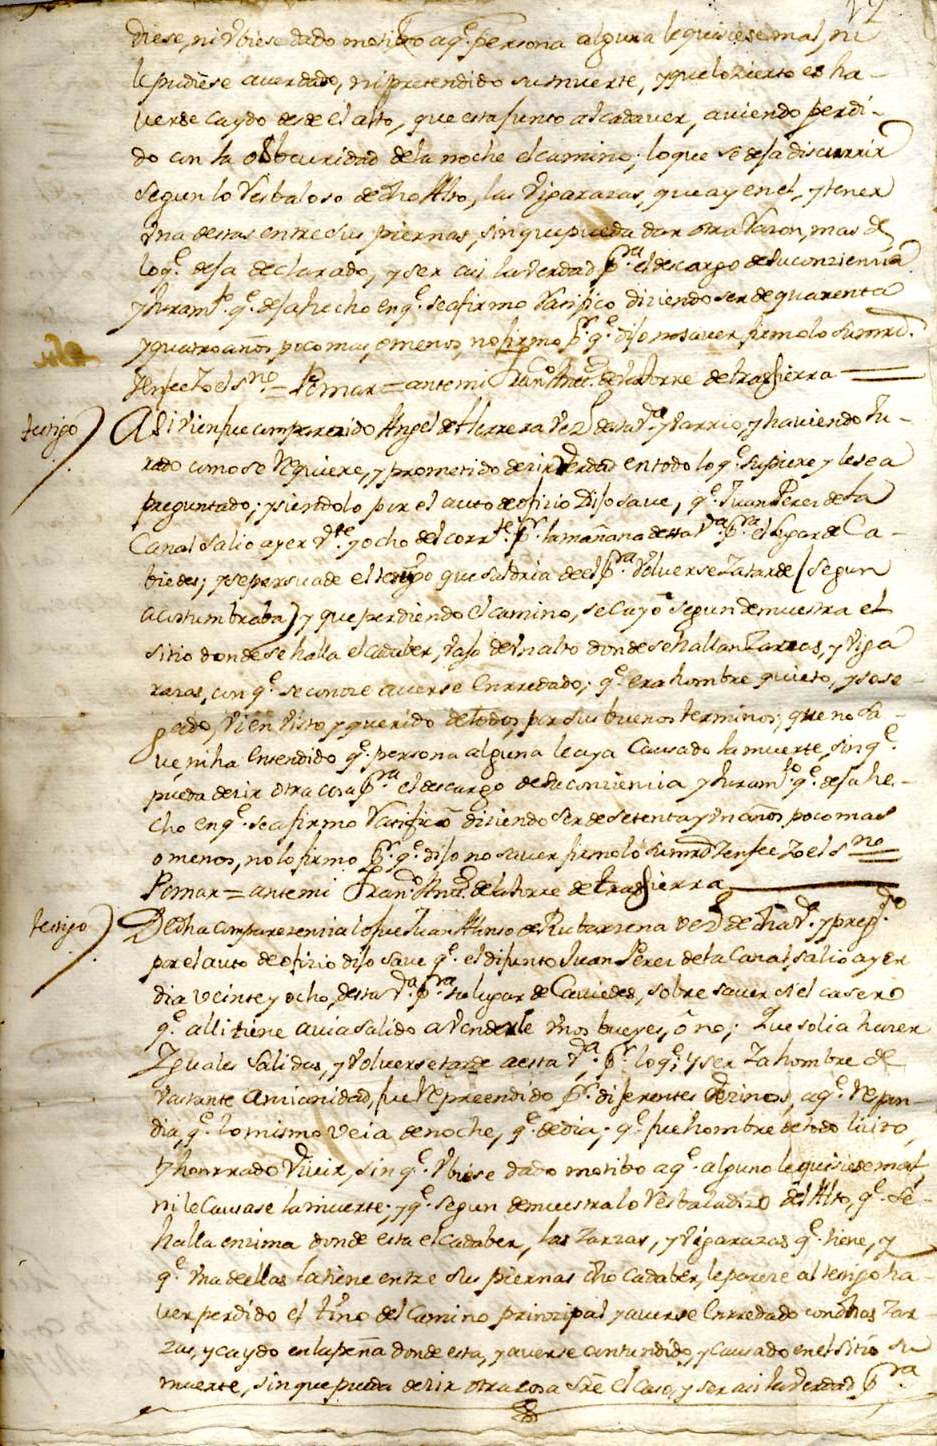 12
diese, ni Vbiese dado motibo aq.e persona alguna le quisiese mal, ni
le pudiese aver dado, ni pretendido su muerte, y que lo zierto es ha-
verse caydo desde el alto, que esta junto al cadaver, aviendo perdi-
do con la obscuridad de la noche el camino; lo que se deja discurrir
segun lo Resbaloso de dho Alto, las Vigarazas, que ay en el, y tener
Vna destas entre sus piernas, sin que pueda dar otra Razon, mas de
loq.e deja declarado, y ser asi la verdad p.a el descargo de su conzienzia
y Juram.to q.e deja hecho en q.e se afirmo Ratifico diziendo ser de quarenta
y quatro años poco mas, o menos, no firmo p.r q.e dijo no saver, firmolo su mrd.
Yenfee Zo el s.no = Pomar = antemi Fran.co Ant.o de la Torre de trasfierra
testigo
Asi vien fue comparezido Angel de Herrera Vez.o desta V.a y varrio, y haviendo Ju-
rado como se Requiere, y prometido dezir Verdad en todo lo q.e supiere y le sea
preguntado; y siendolo por el auto de ofizio Dijo save, q.e Juan Perez de la
Canal salio ayer V.te y ocho del corr.te p.r la mañana desta V.a p.ra el lugar de Ca-
biedes; y se persuade el testigo que saldria de el p.ra Volverse Za tarde (segun
acostumbraba) y que perdiendo el camino, se cayo segun demuestra el
sitio donde se halla el cadaber, vajo de Vn alto donde se hallan Zarzas, y Viga
razas, con q.e se conoze averse enrredado; q.e era hombre quieto, y sose-
gado, Vien Visto, y querido de todos, por sus buenos terminos, que no sa-
ve, ni ha entendido q.e persona alguna le aya Causado la muerte, sin q.e
pueda dezir otra cosa p.ra el descargo de su conzienzia y Juram.to q.e deja he-
cho en q.e se afirmo Ratifico diziendo ser de setenta y Vn años poco mas
o menos, no lo firmo p.r q.e dijo no saver firmolo su mrd Yenfee Zo el s.no
Pomar = antemi Fran.co Ant.o de la Torre de trasfierra
testigo
Dedha comparezenzia lo fue Juan Alonso de Rubarzena Vez.o de dha V.a y preg.do
por el auto de ofizio dijo save q.e el difunto Juan Perez de la Canal salio ayer
dia veinte y ocho, desta V.a p.ra su lugar de Caviedes, sobre saver si el casero
q.e alli tiene avia salido a Venderle Vnos bueyes, ô no; Que solia hazer
Yguales salidas, y Volverse tarde a esta V.a, p.r loq.e, y ser Ya hombre de
Vastante anzianidad, fue Repreendido p.r diferentes Vezinos, aq.e Respon-
dia, q.e lo mismo veia de noche, q.e de dia; q.e fue hombre de todo lizito,
y honrrado Vivir, sin q.e Vbiese dado motibo aq.e alguno le quisiese mal
ni le Causase la muerte; y q.e segun demuestra lo Resbaladizo del Alto, q.e se
halla enzima, donde esta el Cadaber, las Zarzas, y Vigarazas q.e tiene, y
q.e Vna de ellas la tiene entre sus piernas dho Cadaber, le pareze al testigo ha-
ver perdido el tino del Camino prinzipal y averse enrredado con dhas Zar-
zas, y caydo en la peña donde esta, y averse contundido, y Causado en el sitio su
muerte, sin que pueda dezir otra cosa sre el Caso, y ser asi la Verdad p.ra